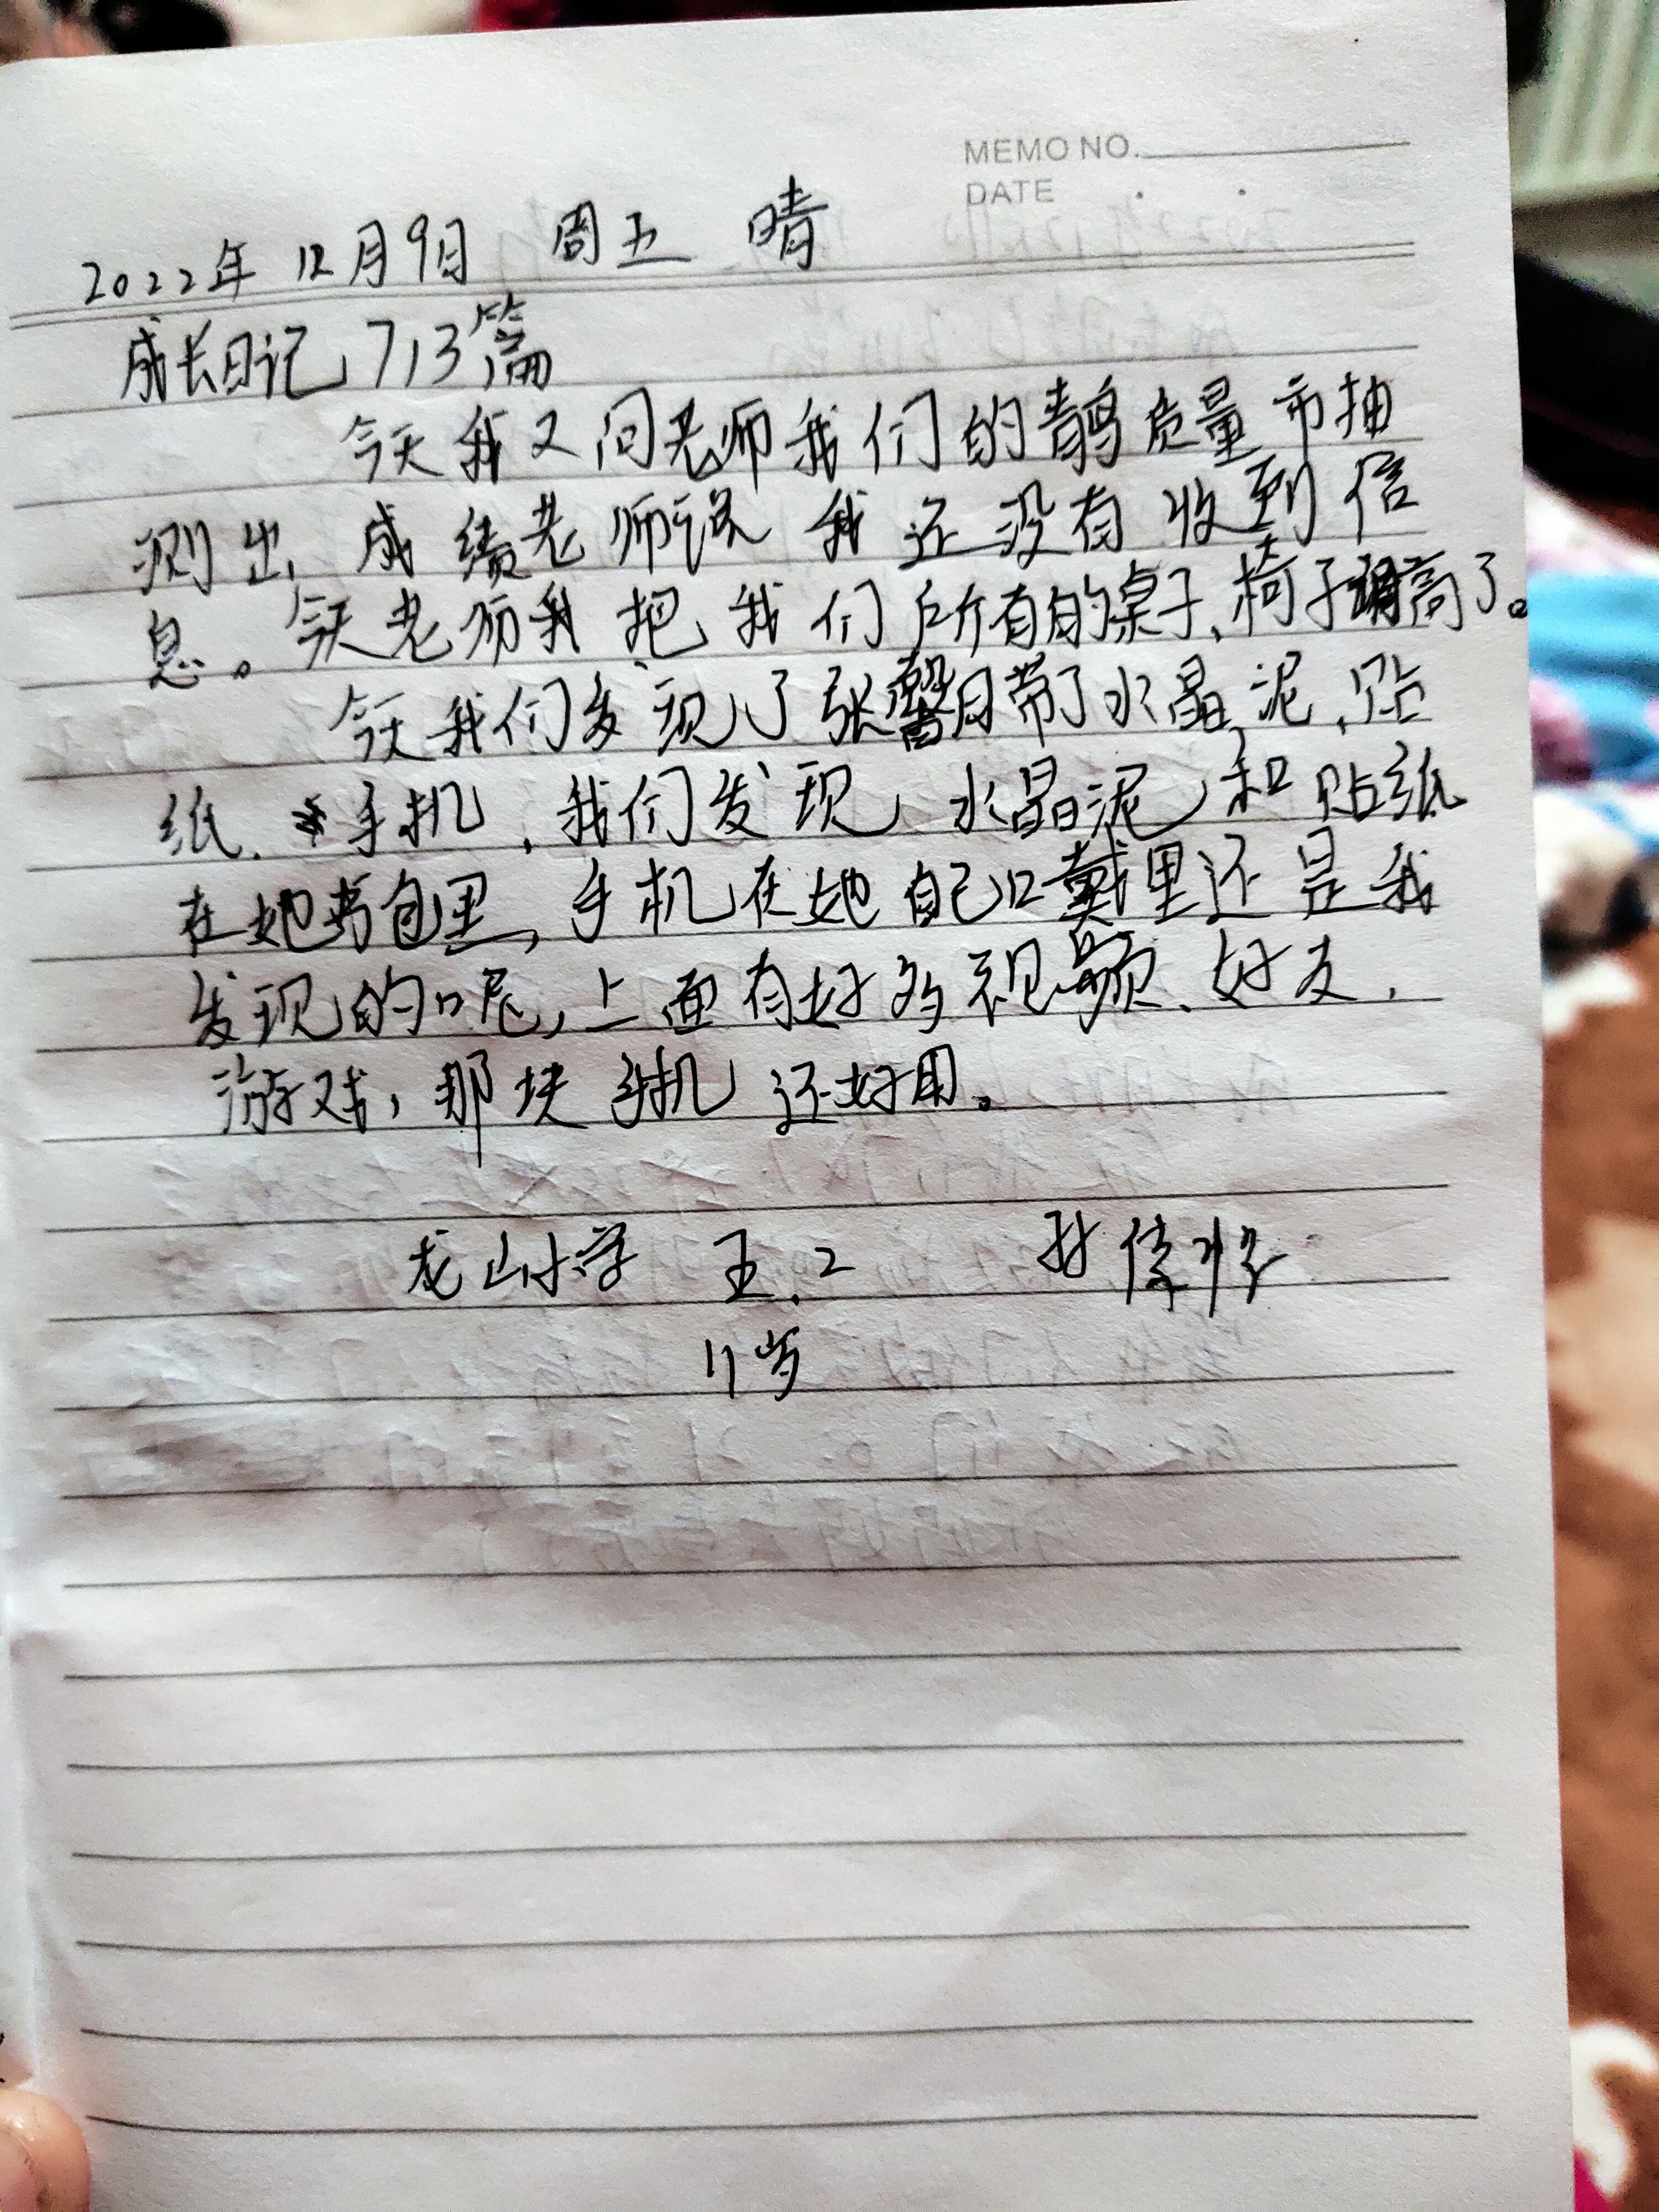 MEMO NO.
DATE
2022年12月9日 周五 晴
成长日记713篇
今天我又问老师我们的质量市抽
测出成绩老师说我还没有收到信
息。今天老师我把我们所有的桌子、椅子调高了。
今天我们发现了张馨月带了水晶泥、贴
纸、手机,我们发现水晶泥和贴纸
在她书包里,手机在她自己口戴里还是我
发现的呢,上面有好多视频、好友,
游戏,那块手机还好用。
龙山小学 五.2 孙
11岁